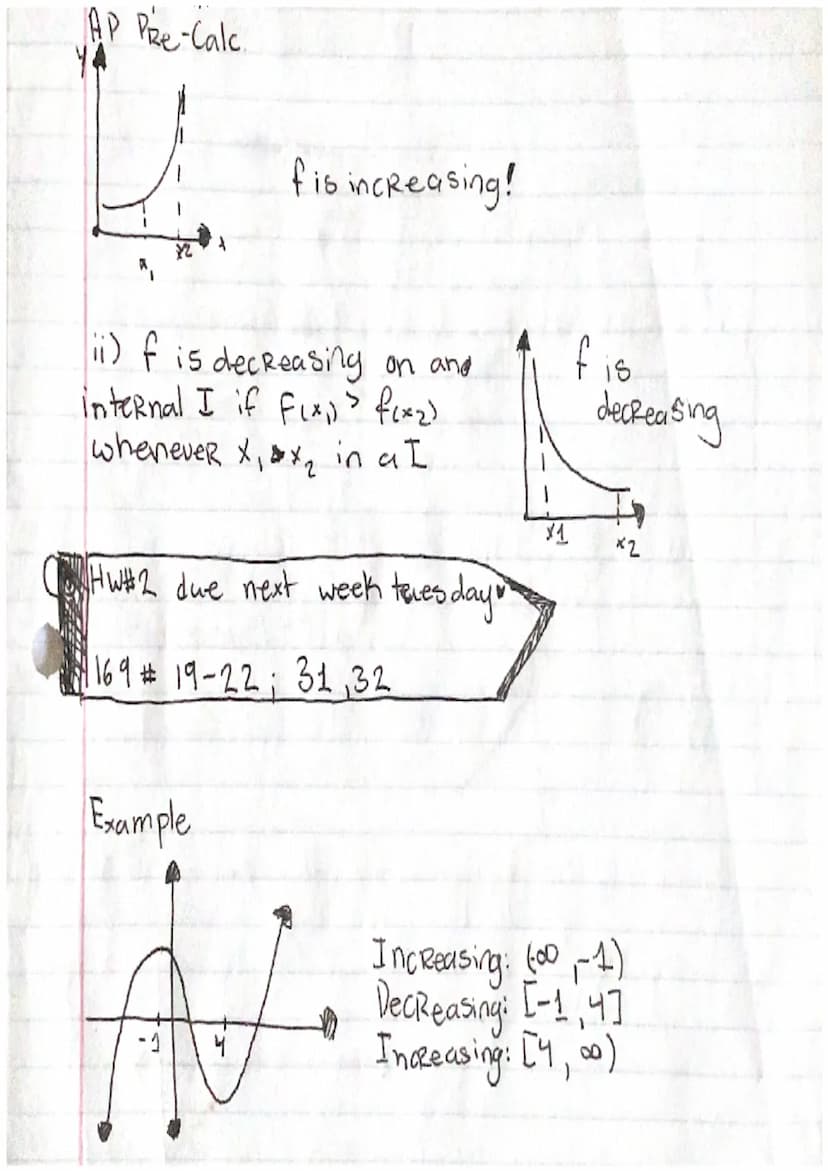 AP PRe-Calc
y
f is increasing!
x
x1
x2
ii) f is decreasing on and
internal I if F(x1) > f(x2)
whenever x1 x2 in a I
f is
decreasing
x1
x2
HW#2 due next week tuesday
169 # 19-22 ; 31,32
Example
-1
4
Increasing: (-∞, -1)
Decreasing: [-1, 4]
Increasing: [4, ∞)